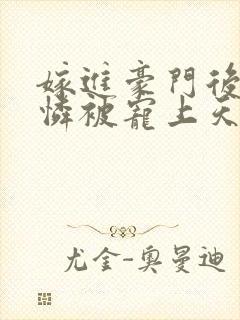 嫁進豪門後
憐被寵上天
尤金-奧曼迪